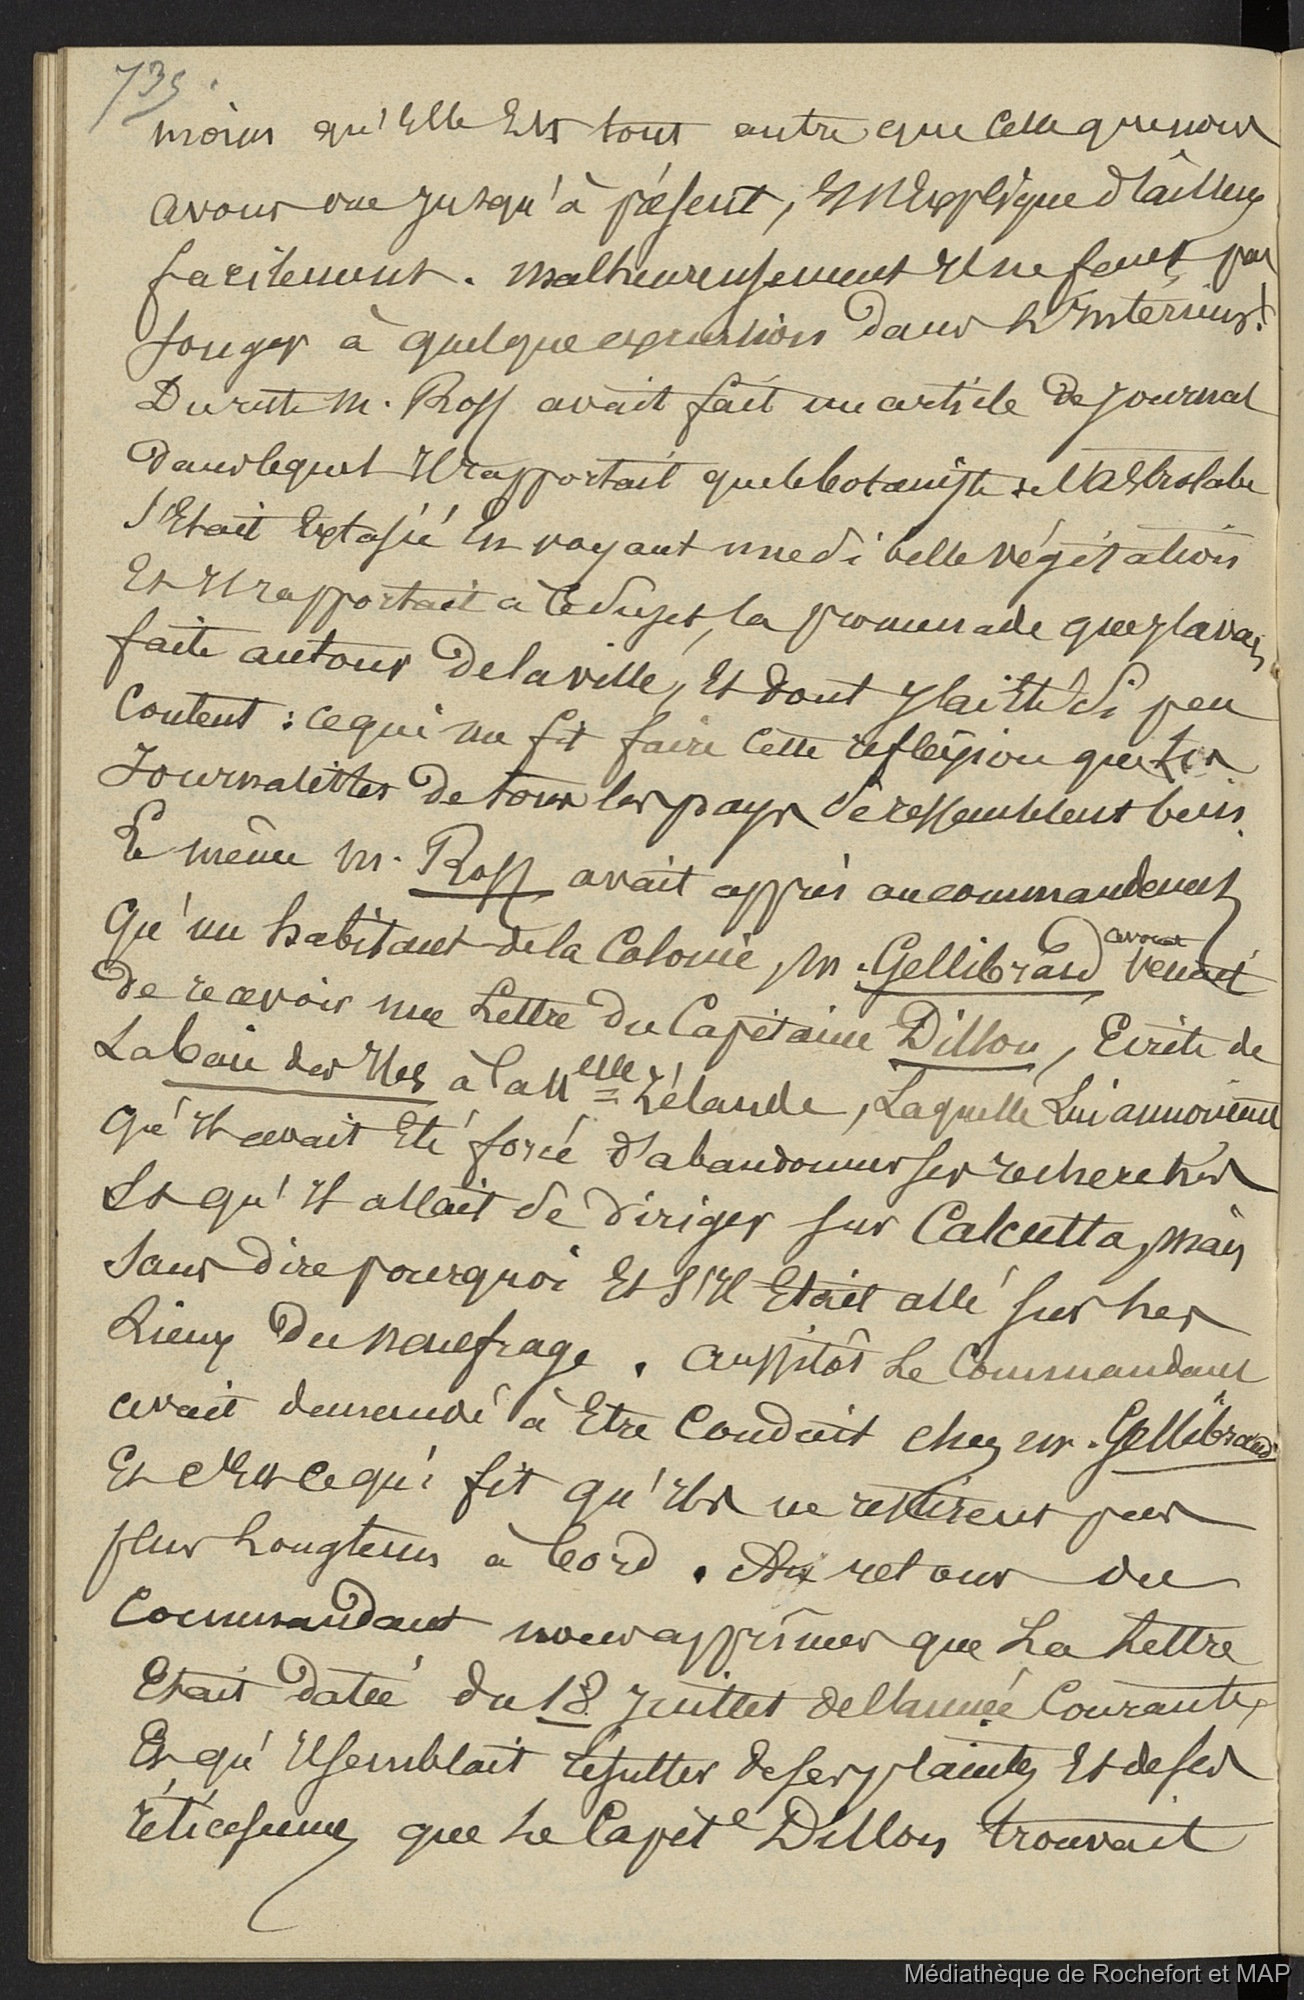 735.
moins qu'Elle Est tout autre que celle que nous
avons vue jusqu'à présent, Et s'Explique d'ailleurs
facilement. malheureusement Il ne faut pas
songer à quelque excursion dans L'Intérieur.
Du reste M. Ross avait fait un article de journal
dans lequel Il rapportait que le botaniste de l'Astrolabe
s'Etait Extasié En voyant une si belle végétation
Et Il rapportait à ce sujet, la promenade que j'avais
faite autour de la ville, Et dont j'ai Eté si peu
Content : ce qui me fit faire cette reflexion que les
Journalistes de tous les pays se ressemblent bien.
Le même M. Ross avait appris au commandant
Qu'un habitant de la Colonie, M. Gellibrand avocat venait
de recevoir une Lettre du Capitaine Dillon, Ecrite de
La baie des Iles à la Nelle Zélande, Laquelle Lui annonçait
qu'Il avait Eté forcé d'abandonner ses recherches
Et qu'Il allait se diriger sur Calcutta, mais
sans dire pourquoi Et s'Il Etait allé sur les
Lieux du naufrage. Aussitôt Le Commandant
avait demandé à Etre Conduit chez M. Gellibrand
Et c'Est ce qui fit qu'Ils ne restèrent pas
plus Longtems à bord. Au retour du
Commandant nous apprîmes que La Lettre
Etait datée du 18 Juillet de l'année Courante,
Et qu'Il semblait résulter de ses plaintes Et de ses
que Le Capite Dillon trouvait
Médiathèque de Rochefort et MAP